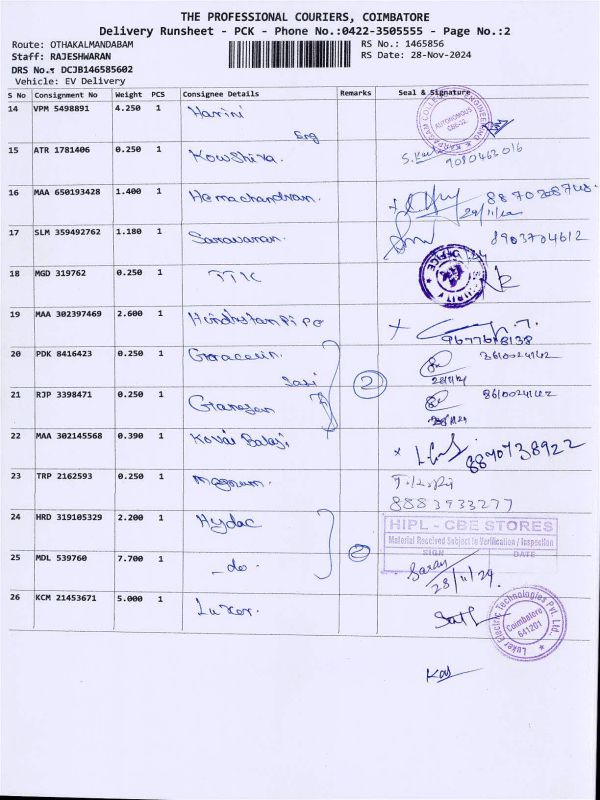 THE PROFESSIONAL COURIERS, COIMBATORE
Delivery Runsheet - PCK - Phone No.:0422-3505555 - Page No.:2
Route: OTHAKALMANDABAM
RS No.: 1465856
Staff: RAJESHWARAN
RS Date: 28-Nov-2024
DRS No.: DCJB146585602
Vehicle: EV Delivery
S No Consignment No Weight PCS Consignee Details Remarks Seal & Signature
14 VPM 5498891 4.250 1 Harini
Eng
AUTONOMOUS
15 ATR 1781406 0.250 1 Kowshika.
16 MAA 650193428 1.400 1 Hemachandran.
17 SLM 359492762 1.180 1 Saravanan. 8903704612
18 MGD 319762 0.250 1 TTK
SECURITY OFFICE
19 MAA 302397469 2.600 1 Hindustan Pipe
20 PDK 8416423 0.250 1
Sasi 2
21 RJP 3398471 0.250 1 Ganesan
22 MAA 302145568 0.390 1 Kovai Balaji 8870738922
23 TRP 2162593 0.250 1 Magnum.
8883933277
24 HRD 319105329 2.200 1 Hydac
HIPL - CBE STORES
Material Received Subject to Verification / Inspection
SIGN DATE
25 MDL 539760 7.700 1 - do - 2
Saran
28/11/24
26 KCM 21453671 5.000 1 Luker.
Luker Electric Technologies Pvt. Ltd.
Coimbatore
641201